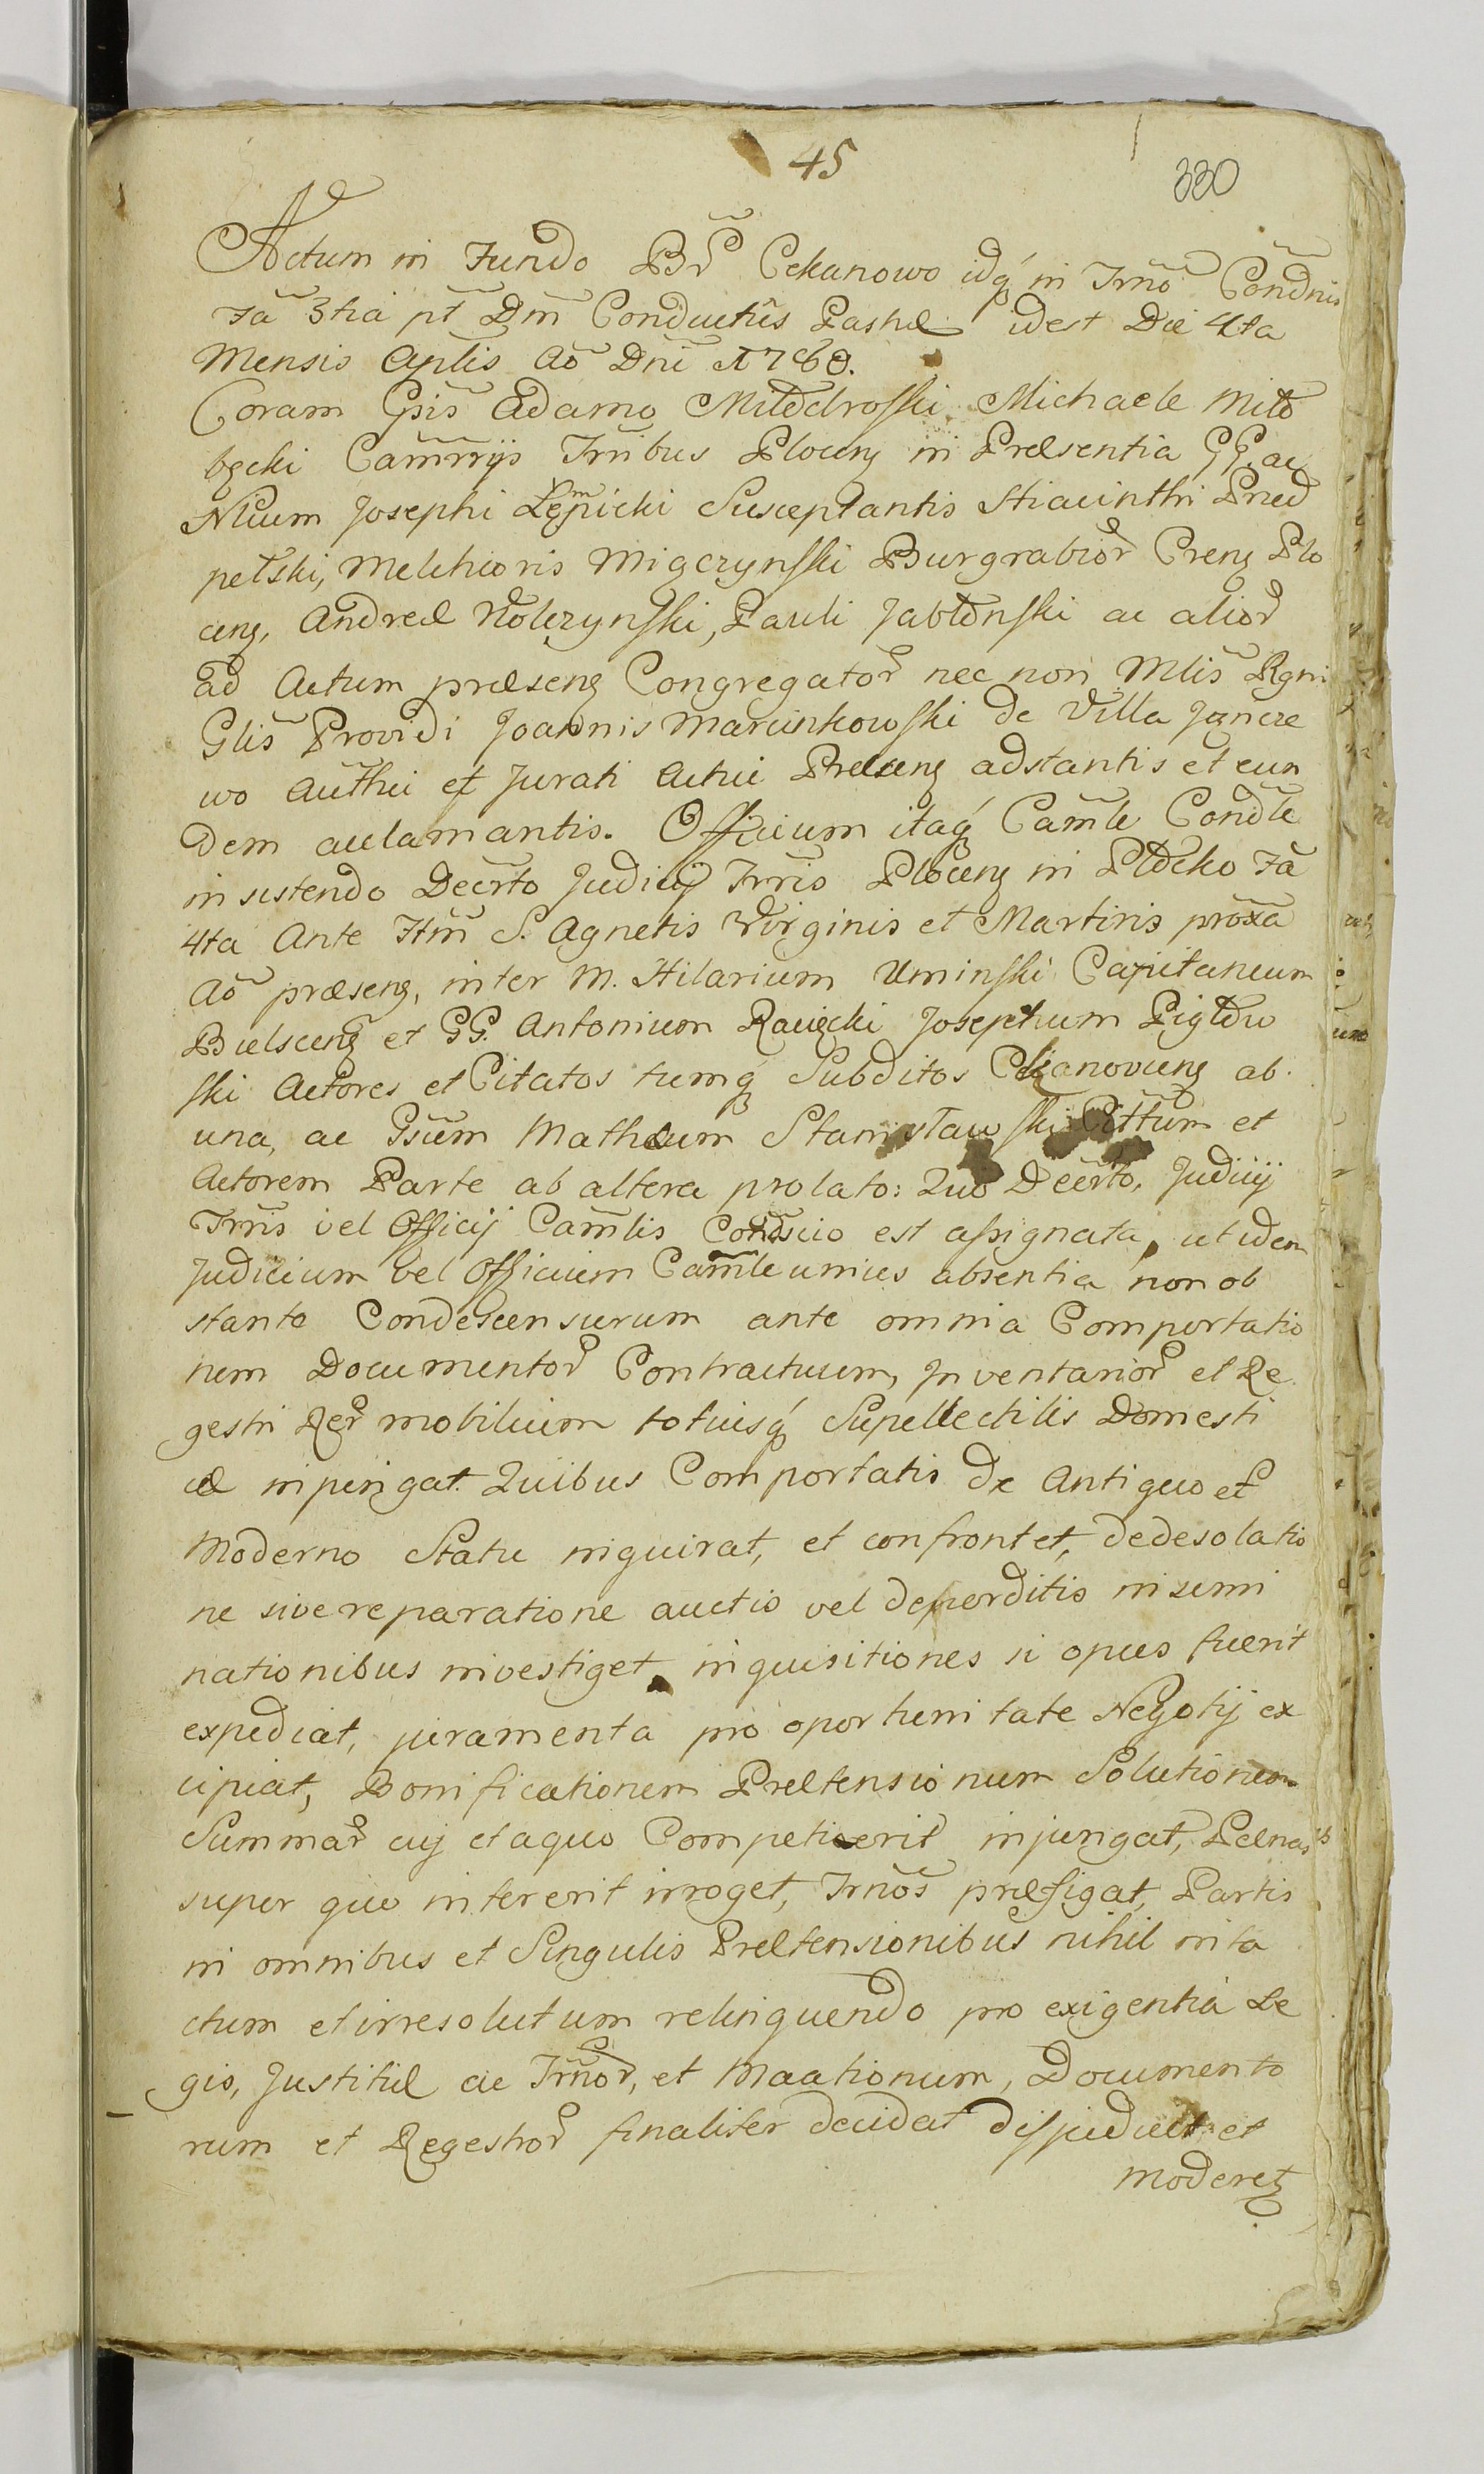 45
330
Actum in Fundo Br̃ Cekanowo idq́ in Trno Condnis
Fa 3tia pt Dm Conductus Paschæ idest Die 4ta
Mensis Aplis Ao Dni 1768.
Coram Gsis Adamo Miłodroski Michaele Miło
będzki Camrrijs Trribus Plocen in Præsentia GG. ac
Nlium Josephi Lempicki Susceptantis Hiacinthi Przed
pełski, Melchioris Mięczynski Burgrabior Cren Plo
cen, Andreæ Wolczynski, Pauli Jabłonski ac alior
ad Actum præsen Congregator nec non Mlis Rgni
Glis Providi Joannis Marcinkowski de Villa Jancze
wo Authci et Jurati Actui Præsen adstantis et eun
dem acclamantis. Officium itaq́ Camle Condle
insistendo Decrto Judicij Trris Plocen in Płocko Fa
4ta Ante Ftm S. Agnetis Virginis et Martiris proxa
Ao præsen, inter M. Hilarium Uminski Capitaneum
Bielscen et GG. Antonium Racięcki Josephum Pigłow
ski Actores et Citatos tumq́ Subditos Cekanovien ab
una, ac Gsum Mathæum Stanisławski Cittum et
Actorem Parte ab altera prolato: Quo Decrto, Judicij
Trris vel Officij Camlis Condscio est assignata, ut idem
Judicium vel Officium Camle unius absentia non ob
stante Condescensurum ante omnia Comportatio
nem Documentor Contractuum, Inventarior et Re
gestri Rer mobilium totiusq́ Supellectilis Domesti
cæ injungat. Quibus Comportatis de Antiquo et
Moderno Statu inquirat, et confrontet, de desolatio
ne sive reparatione auctio vel deperditio in semi
nationibus investiget, inquisitiones si opus fuerit
expediat, juramenta pro oportunitate Negotij ex
cipiat, Bonificationem Prætensionum Solutionem
Summar cuj et a quo Competierit injungat, Pænas
super quo intererit irroget, Trnos præfigat, Partis
in omnibus et Singulis Prætensionibus nihil inta
ctum et irresolutum relinquendo pro exigentia Le
gis, Justitiæ ac Trnor, et Maationum, Documento
rum et Regestror finaliter decidat disjudicet et
moderet